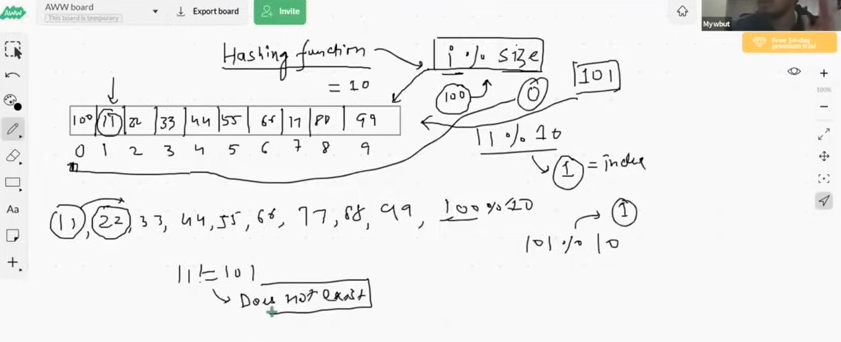 AWW
AWW board
This board is temporary
Export board
Invite
Mywbut
Free 14-day
premium trial
Hashing function
i % size
= 10
100
0
101
100 11 22 33 44 55 66 77 88 99
0 1 2 3 4 5 6 7 8 9
11 % 10
1 = index
11, 22, 33, 44, 55, 66, 77, 88, 99, 100 % 10
1
101 % 10
11 != 101
Does not exist
Aa
100%